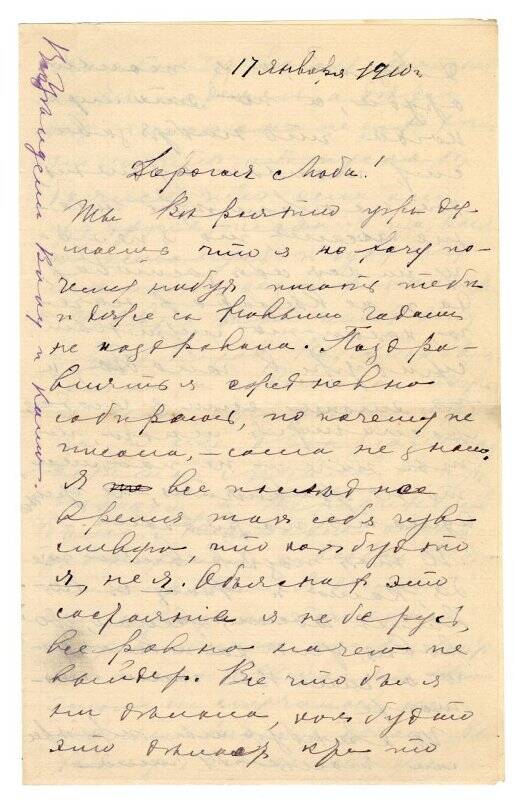 17 января 1910 г
Дорогая Люба!
Ты вероятно уже ду-
маешь что я не хочу по-
чему нибудь писать тебе
и даже с Новым годом
не поздравила. Поздра-
влять я ежедневно
собиралась, но почему не
писала, – сама не знаю.
Я все последнее
время так себя чув-
ствую, что как будто
я, не я. Объяснять это
состояние я не берусь,
все равно ничего не
выйдет. Все что бы я
ни делала, как будто
это делает кто то
Володю и Катю.